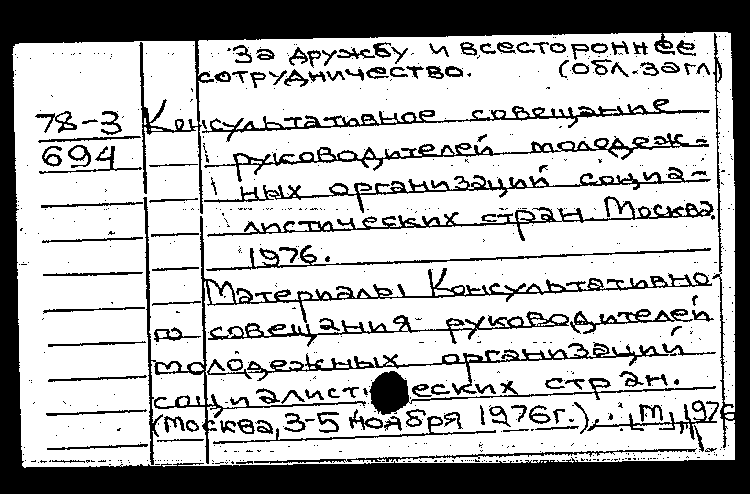 За дружбу и всестороннее
сотрудничество. (обл. загл.)
78-3 Консультативное совещание
694 руководителей молодеж-
ных организаций социа-
листических стран. Москва.
1976.
Материалы Консультативно-
го совещания руководителей
молодежных организаций
социалистических стран.
(Москва, 3-5 ноября 1976г.), М., 1976